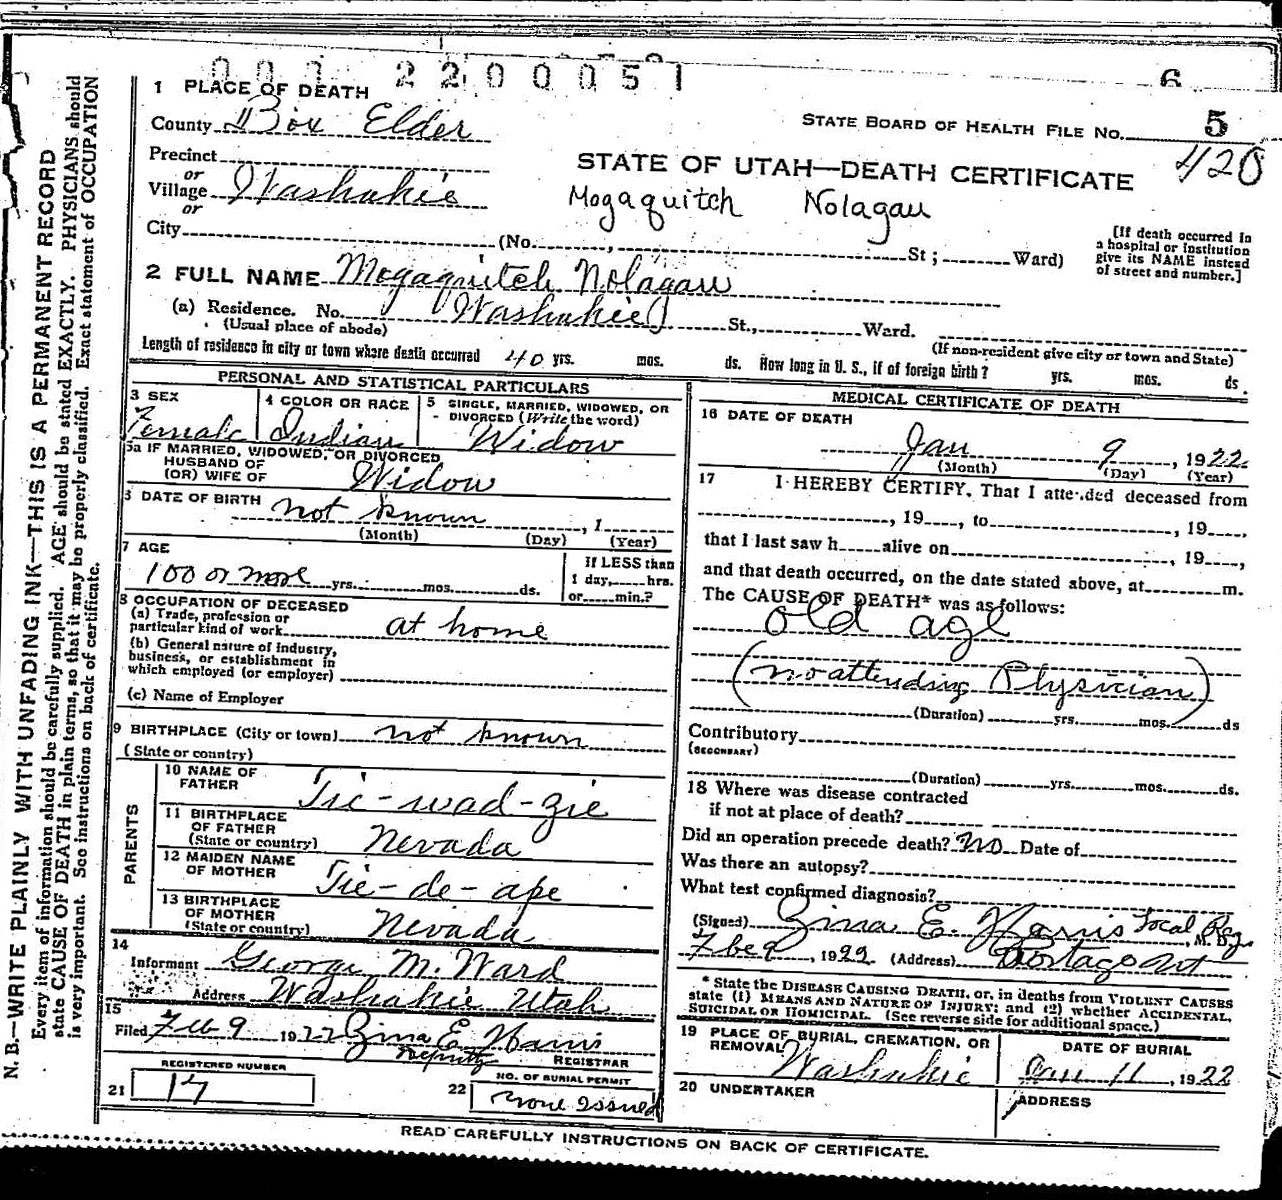 000 2200051 6
1 PLACE OF DEATH
County Box Elder
STATE BOARD OF HEALTH FILE NO. 5
420
Precinct
or
Village Washakie
or
City
STATE OF UTAH—DEATH CERTIFICATE
Mogaquitch Nolagau
(No. , St ; Ward)
[If death occurred in
a hospital or institution
give its NAME instead
of street and number.]
2 FULL NAME Mogaquitch Nolagau
(a) Residence. No. Washakie St., Ward.
(Usual place of abode)
(If non-resident give city or town and State)
Length of residence in city or town where death occurred 40 yrs. mos. ds. How long in U. S., if of foreign birth? yrs. mos. ds.
PERSONAL AND STATISTICAL PARTICULARS
3 SEX
Female
4 COLOR OR RACE
Indian
5 SINGLE, MARRIED, WIDOWED, OR
DIVORCED (Write the word)
Widow
5a IF MARRIED, WIDOWED, OR DIVORCED
HUSBAND OF
(OR) WIFE OF Widow
DATE OF BIRTH not known , 1
(Month) (Day) (Year)
7 AGE
100 or more yrs. mos. ds.
If LESS than
1 day, hrs.
or min.?
8 OCCUPATION OF DECEASED
(a) Trade, profession or
particular kind of work at home
(b) General nature of industry,
business, or establishment in
which employed (or employer)
(c) Name of Employer
9 BIRTHPLACE (City or town) not known
(State or country)
PARENTS
10 NAME OF
FATHER Tic-wad-zie
11 BIRTHPLACE
OF FATHER
(State or country) Nevada
12 MAIDEN NAME
OF MOTHER Tie-de-ape
13 BIRTHPLACE
OF MOTHER
(State or country) Nevada
14
Informant George M. Ward
Address Washakie Utah
15
Filed Feb 9 1922 Zina E. Harris
Deputy REGISTRAR
REGISTERED NUMBER
21 17
NO. OF BURIAL PERMIT
22 None Issued
MEDICAL CERTIFICATE OF DEATH
16 DATE OF DEATH
Jan 9 , 1922
(Month) (Day) (Year)
17 I HEREBY CERTIFY, That I attended deceased from
, 19 , to , 19 ,
that I last saw h alive on , 19 ,
and that death occurred, on the date stated above, at m.
The CAUSE OF DEATH* was as follows:
old age
(no attending Physician)
(Duration) yrs. mos. ds
Contributory
(SECONDARY)
(Duration) yrs. mos. ds.
18 Where was disease contracted
if not at place of death?
Did an operation precede death? No Date of
Was there an autopsy?
What test confirmed diagnosis?
(Signed) Zina E. Harris Local Reg. M. D.
Feb 9 , 1922 (Address) Portage Ut
* State the DISEASE CAUSING DEATH, or, in deaths from VIOLENT CAUSES
state (1) MEANS AND NATURE OF INJURY; and (2) whether ACCIDENTAL,
SUICIDAL OR HOMICIDAL. (See reverse side for additional space.)
19 PLACE OF BURIAL, CREMATION, OR
REMOVAL Washakie
DATE OF BURIAL
Jan 11 , 1922
20 UNDERTAKER
ADDRESS
READ CAREFULLY INSTRUCTIONS ON BACK OF CERTIFICATE.
N. B.—WRITE PLAINLY WITH UNFADING INK—THIS IS A PERMANENT RECORD
Every item of information should be carefully supplied. AGE should be stated EXACTLY. PHYSICIANS should
state CAUSE OF DEATH in plain terms, so that it may be properly classified. Exact statement of OCCUPATION
is very important. See instructions on back of certificate.